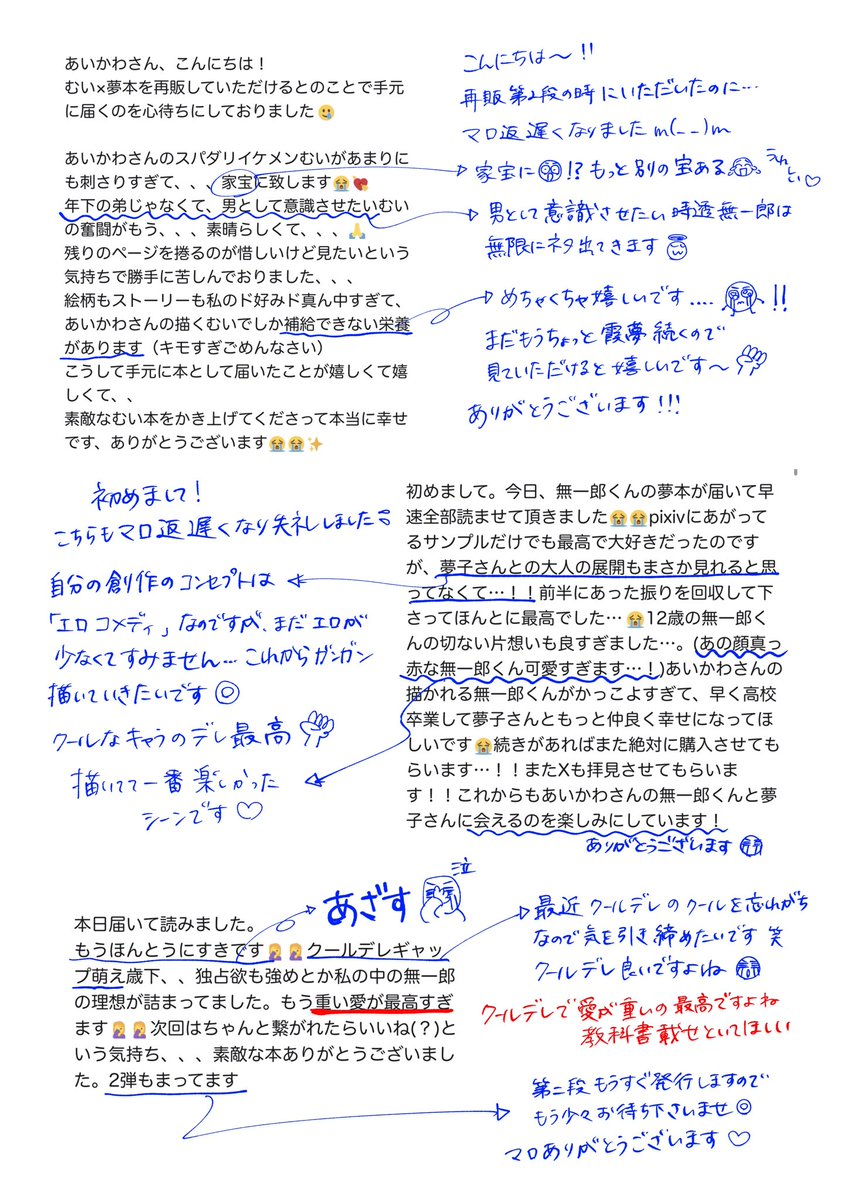 あいかわさん、こんにちは！
むい×夢本を再販していただけるとのことで手元
に届くのを心待ちにしておりました🥲
あいかわさんのスパダリイケメンむいがあまりに
も刺さりすぎて、、、家宝に致します😭💘
年下の弟じゃなくて、男として意識させたいむい
の奮闘がもう、、、素晴らしくて、、、🙏
残りのページを捲るのが惜しいけど見たいという
気持ちで勝手に苦しんでおりました、、、
絵柄もストーリーも私のド好みド真ん中すぎて、
あいかわさんの描くむいでしか補給できない栄養
があります（キモすぎごめんなさい）
こうして手元に本として届いたことが嬉しくて嬉
しくて、、
素敵なむい本をかき上げてくださって本当に幸せ
です、ありがとうございます😭😭✨
こんにちは〜!!
再販第2段の時にいただいたのに…
マロ返遅くなりましたm(_ _)m
家宝に!?もっと別の宝ある うれしい♡
男として意識させたい時透無一郎は
無限にネタ出てきます
めちゃくちゃ嬉しいです....!!
まだもうちょっと霞夢続くので
見ていただけると嬉しいです〜
ありがとうございます!!!
初めまして！
こちらもマロ返遅くなり失礼しました
自分の創作のコンセプトは
「エロコメディ」なのですが、まだエロが
少なくてすみません…これからガンガン
描いていきたいです◎
クールなキャラのデレ最高
描いてて一番楽しかった
シーンです♡
初めまして。今日、無一郎くんの夢本が届いて早
速全部読ませて頂きました😭😭pixivにあがって
るサンプルだけでも最高で大好きだったのです
が、夢子さんとの大人の展開もまさか見れると思
ってなくて…！！前半にあった振りを回収して下
さってほんとに最高でした…😭12歳の無一郎く
んの切ない片想いも良すぎました…。(あの顔真っ
赤な無一郎くん可愛すぎます…！)あいかわさんの
描かれる無一郎くんがかっこよすぎて、早く高校
卒業して夢子さんともっと仲良く幸せになってほ
しいです😭続きがあればまた絶対に購入させても
らいます…！！またXも拝見させてもらいま
す！！これからもあいかわさんの無一郎くんと夢
子さんに会えるのを楽しみにしています！
ありがとうございます
本日届いて読みました。
もうほんとうにすきです🤦‍♀️🤦‍♀️クールデレギャッ
プ萌え歳下、、独占欲も強めとか私の中の無一郎
の理想が詰まってました。もう重い愛が最高すぎ
ます🤦‍♀️🤦‍♀️次回はちゃんと繋がれたらいいね(？)と
いう気持ち、、、素敵な本ありがとうございまし
た。2弾もまってます
あざす
泣
最近クールデレのクールを忘れがち
なので気を引き締めたいです 笑
クールデレ良いですよね
クールデレで愛が重いの最高ですよね
教科書載せといてほしい
第二段もうすぐ発行しますので
もう少々お待ち下さいませ◎
マロありがとうございます♡